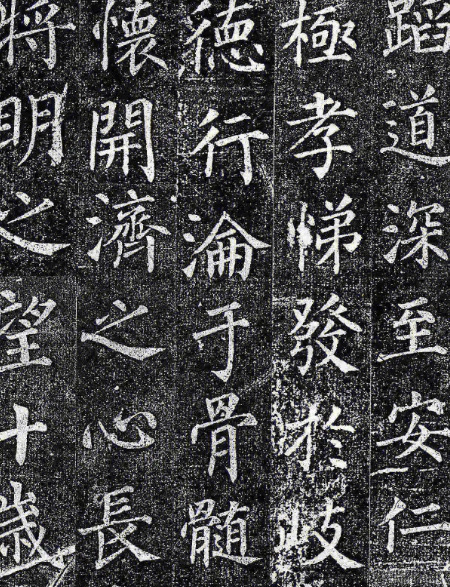 蹈道深至安仁
極孝悌發於岐
德行淪于骨髓
懷開濟之心長
將明之望十歲